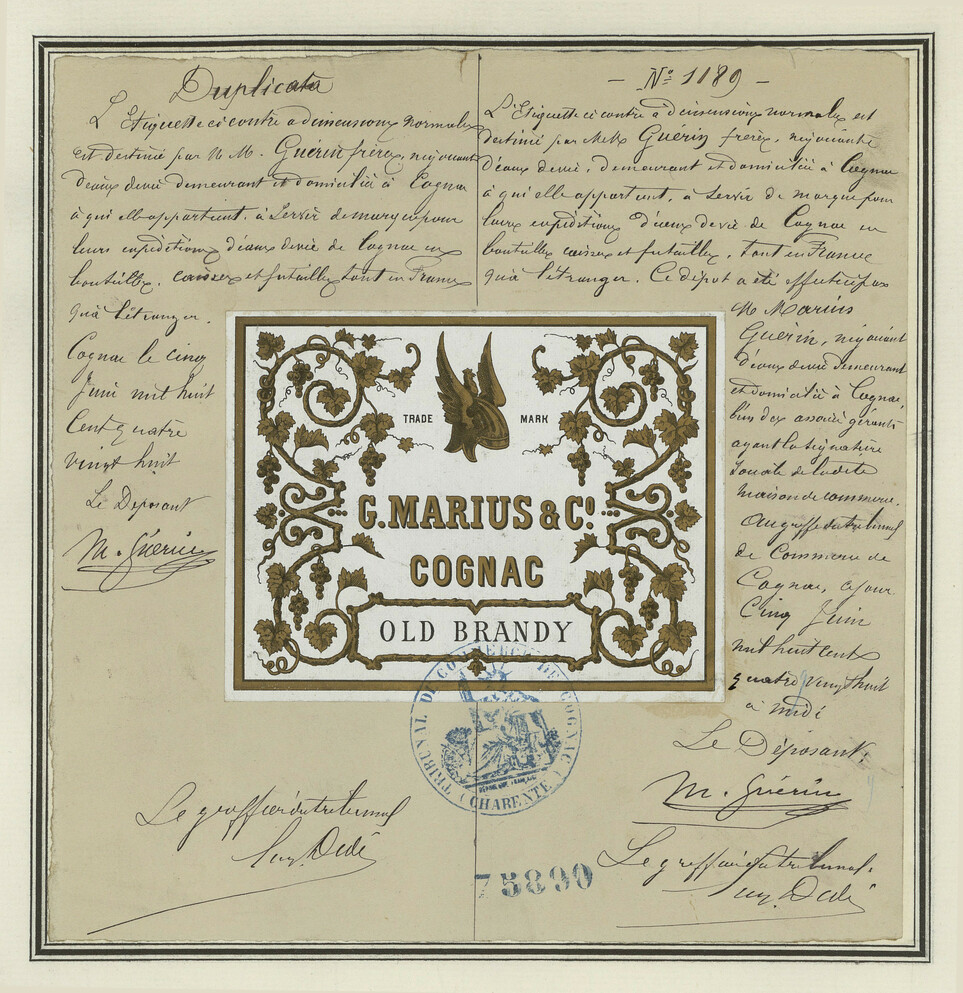 Duplicata
L'Etiquette ci contre à dimensions normales
est destinée par M M. Guérin frères, négociants
d'eaux de vie demeurant et domiciliés à Cognac
à qui elle appartient, à servir de marque pour
leurs expéditions d'eaux de vie de Cognac en
bouteilles, caisses et futailles tant en France
qu'à l'étranger.
Cognac le cinq
Juin mil huit
Cent quatre
vingt huit
Le Déposant
M. Guérin
Le greffier du tribunal
Dédé
- No 1189 -
L'Etiquette ci contre à dimensions normales est
destinée par MM Guérin frères, négociants
d'eaux de vie, demeurant et domiciliés à Cognac
à qui elle appartient, à servir de marque pour
leurs expéditions d'eaux de vie de Cognac en
bouteilles, caisses et futailles, tant en France
qu'à l'étranger. Ce dépot a été effectué par
M Marius
Guérin, négociant
d'eaux de vie demeurant
et domicilié à Cognac,
l'un des associés gérants
ayant la signature
sociale de ladite
maison de commerce.
Au greffe du tribunal
de Commerce de
Cognac, ce jour
Cinq Juin
mil huit cent
quatre vingt huit
à midi
Le Déposant,
M. Guérin
Le greffier du tribunal.
Dédé
TRADE MARK
G. MARIUS & Co.
COGNAC
OLD BRANDY
TRIBUNAL DE COMMERCE DE COGNAC (CHARENTE)
75890